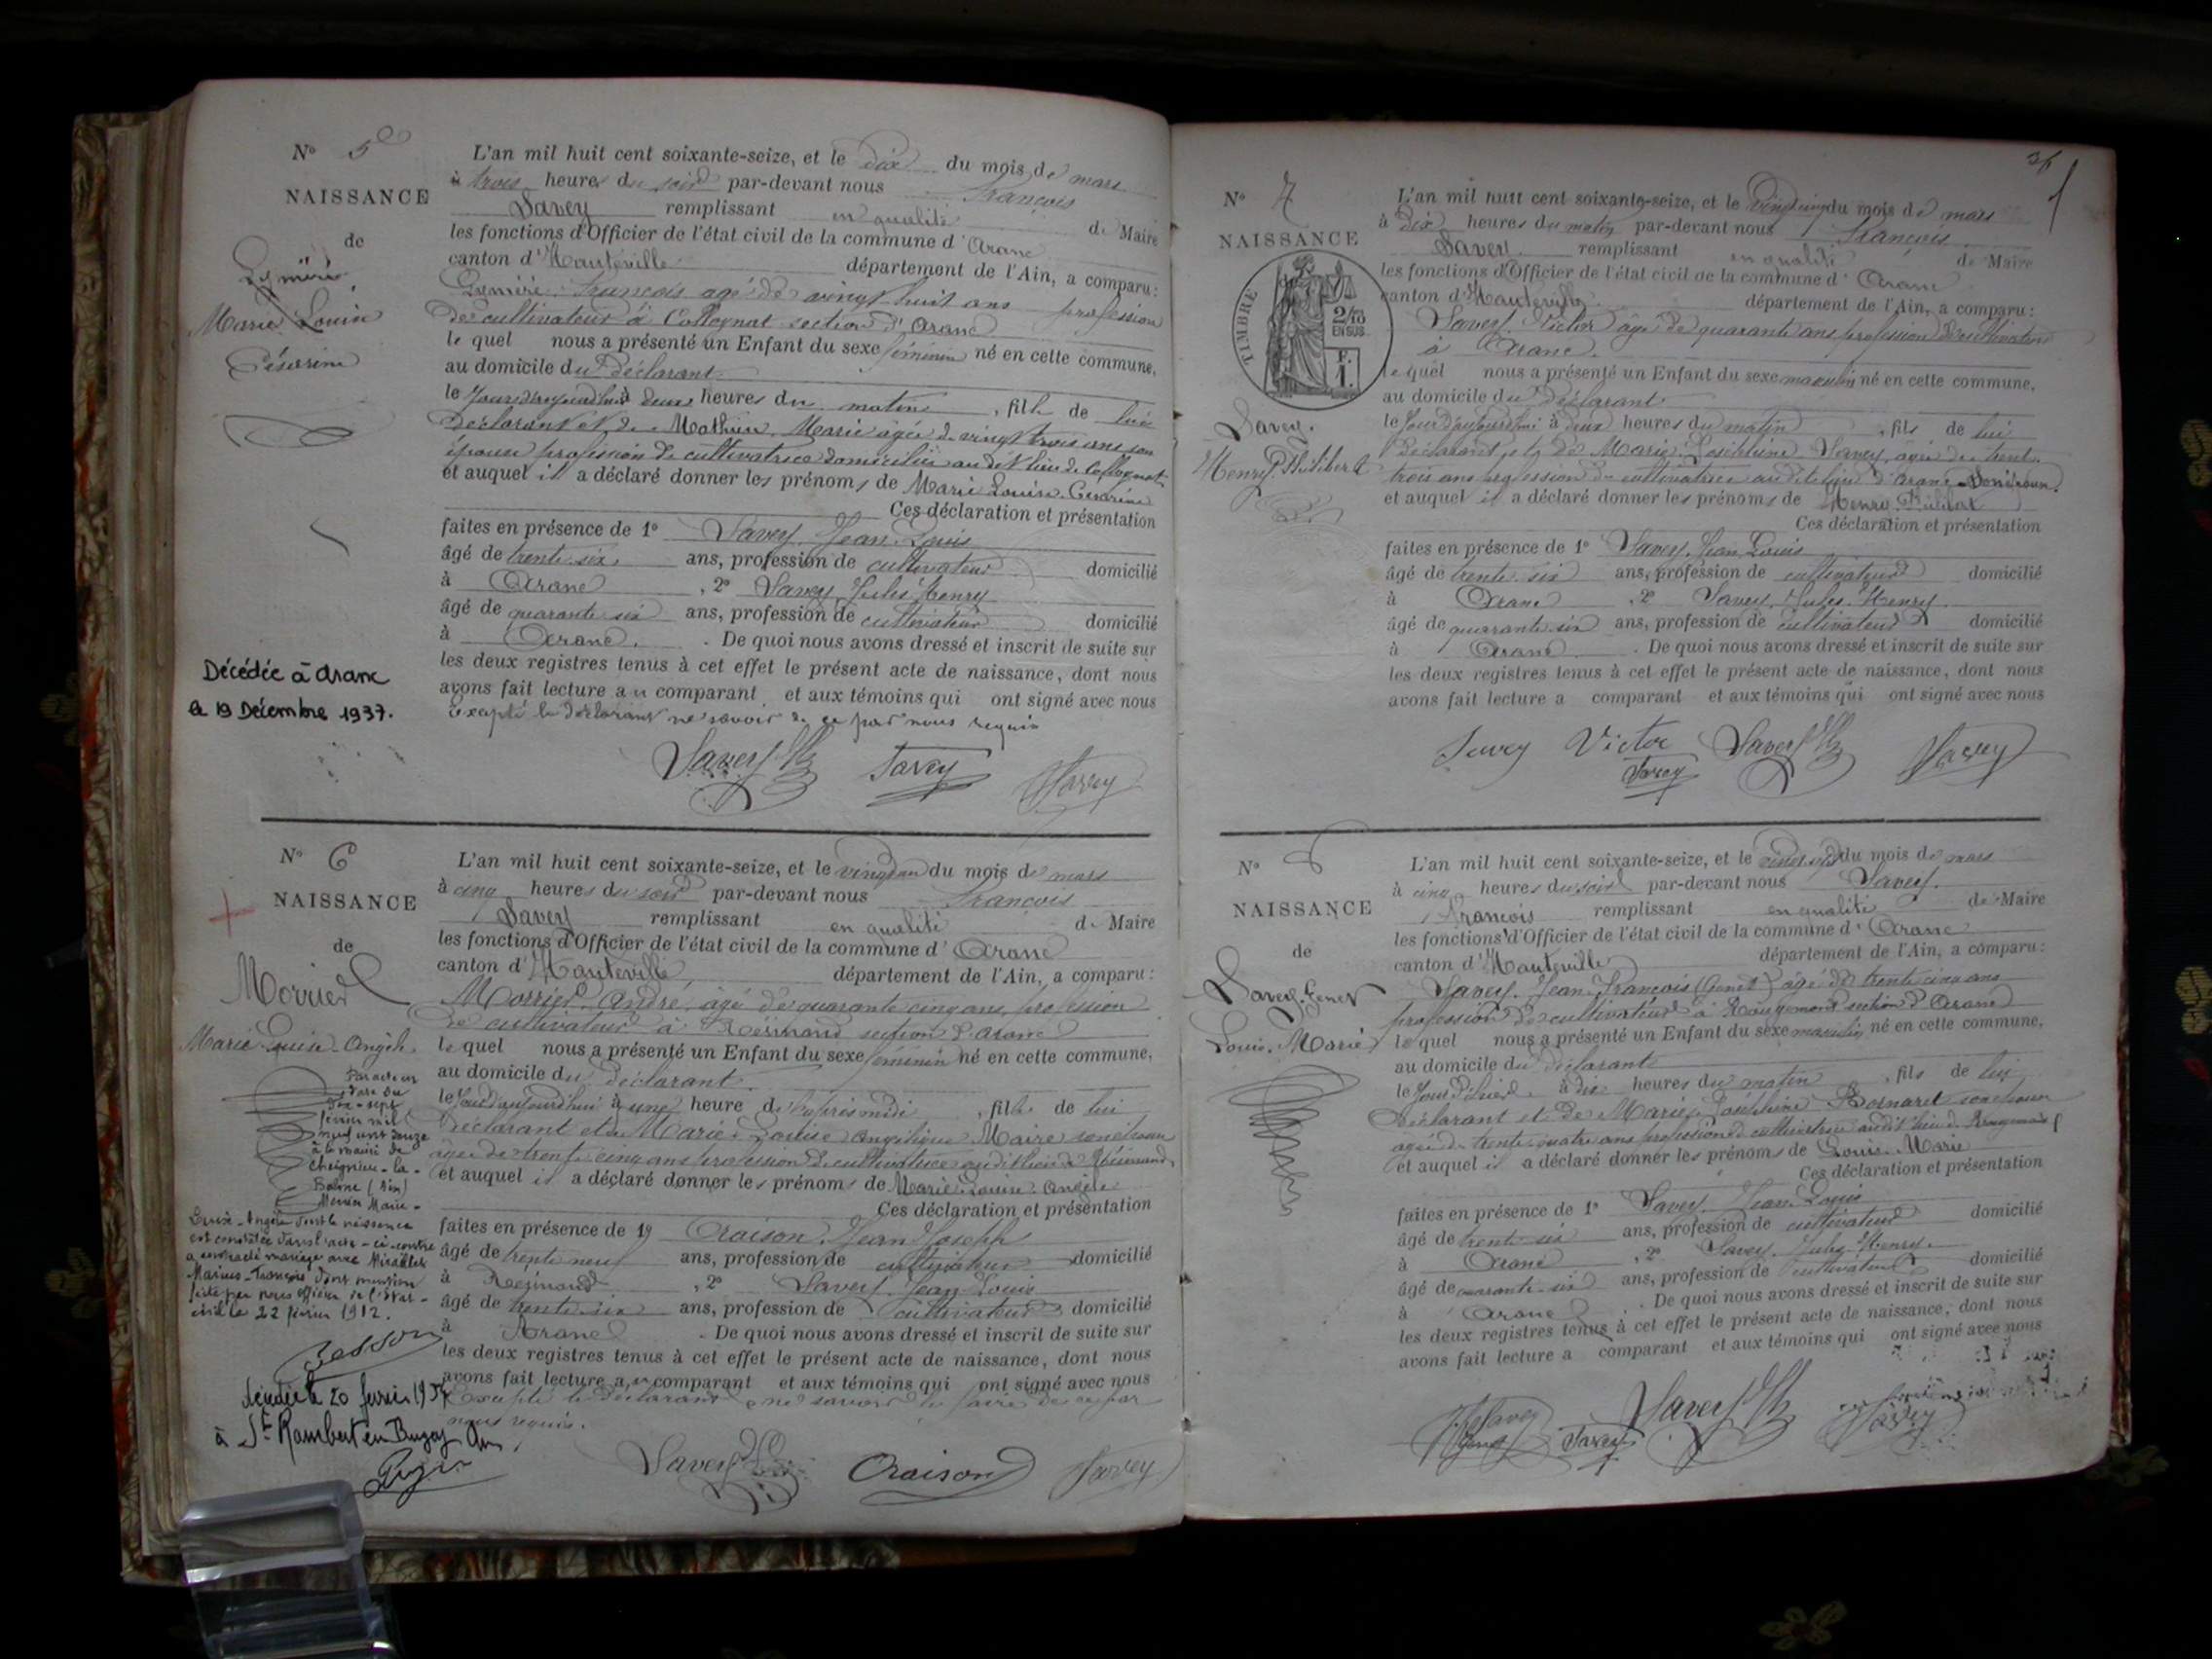 N° 5
NAISSANCE
de
Marie Louise
Césarine
Décédée à Aranc
le 19 Décembre 1937.
L'an mil huit cent soixante-seize, et le dix du mois de mars
à trois heures du soir par-devant nous François
Savey remplissant en qualité de Maire
les fonctions d'Officier de l'état civil de la commune d'Aranc
canton d'Hauteville département de l'Ain, a comparu:
François agé de vingt huit ans profession
de cultivateur à section d'Aranc
lequel nous a présenté un Enfant du sexe féminin né en cette commune,
au domicile du déclarant
le jour d'aujourd'hui à deux heures du matin, fille de lui
déclarant et de Mathieu Marie agée de vingt trois ans son
épouse profession de cultivatrice domiciliée au dit lieu de
et auquel il a déclaré donner les prénoms de Marie Louise Césarine
Ces déclaration et présentation
faites en présence de 1° Savey Jean Louis
âgé de trente six ans, profession de cultivateur domicilié
à Aranc, 2° Savey Jules Henry
âgé de quarante six ans, profession de cultivateur domicilié
à Aranc. De quoi nous avons dressé et inscrit de suite sur
les deux registres tenus à cet effet le présent acte de naissance, dont nous
avons fait lecture au comparant et aux témoins qui ont signé avec nous
excepté le déclarant ne savoir de ce par nous requis
Savey Savey Savey
N° 6
NAISSANCE
de
Morrier
Marie Louise Angèle
Par acte en
date du
dix-sept
février mil
neuf cent douze
à la mairie de
Cheignieu-la-
Balme (Ain)
Marie-
Louise-Angèle dont la naissance
est constatée dans l'acte ci-contre
a contracté mariage avec
Marius-François dont mention
faite par nous officier de l'état-
civil le 22 février 1912.
20 février
à St Rambert en Bugey Ain
L'an mil huit cent soixante-seize, et le du mois de mars
à cinq heures du soir par-devant nous François
Savey remplissant en qualité de Maire
les fonctions d'Officier de l'état civil de la commune d'Aranc
canton d'Hauteville département de l'Ain, a comparu:
Morrier André, âgé de quarante cinq ans, profession
de cultivateur à section d'Aranc
lequel nous a présenté un Enfant du sexe féminin né en cette commune,
au domicile du déclarant.
le jour d'aujourd'hui à une heure de l'après midi, fille de lui
déclarant et de Marie Louise Angélique Maire son épouse
âgée de trente cinq ans profession de cultivatrice au dit lieu de
et auquel il a déclaré donner les prénoms de Marie Louise Angèle
Ces déclaration et présentation
faites en présence de 1° Craison Jean Joseph
âgé de trente neuf ans, profession de cultivateur domicilié
à, 2° Savey Jean Louis
âgé de trente six ans, profession de cultivateur domicilié
à Aranc. De quoi nous avons dressé et inscrit de suite sur
les deux registres tenus à cet effet le présent acte de naissance, dont nous
avons fait lecture au comparant et aux témoins qui ont signé avec nous
Excepté le déclarant ne savoir le faire de ce par
nous requis.
Savey Craison Savey
36
N° 7
NAISSANCE
de
TIMBRE
2/10
EN SUS
F.
1.
Savey.
Henry Philibert
L'an mil huit cent soixante-seize, et le du mois de mars
à dix heures du matin par-devant nous François
Savey remplissant en qualité de Maire
les fonctions d'Officier de l'état civil de la commune d'Aranc
canton d'Hauteville département de l'Ain, a comparu:
Savey Victor âgé de quarante ans profession de cultivateur
à Aranc.
lequel nous a présenté un Enfant du sexe masculin né en cette commune,
au domicile du déclarant
le jour d'aujourd'hui à deux heures du matin, fils de lui
déclarant et de Marie Joséphine Savey agée de trente
trois ans profession de cultivatrice au dit lieu d'Aranc
et auquel il a déclaré donner les prénoms de Henry Philibert
Ces déclaration et présentation
faites en présence de 1° Savey Jean Louis
âgé de trente six ans, profession de cultivateur domicilié
à Aranc, 2° Savey Jules Henry
âgé de quarante six ans, profession de cultivateur domicilié
à Aranc. De quoi nous avons dressé et inscrit de suite sur
les deux registres tenus à cet effet le présent acte de naissance, dont nous
avons fait lecture a comparant et aux témoins qui ont signé avec nous
Savey Victor Savey Savey
Savey
N° 8
NAISSANCE
de
Savey-Genet
Louis Marie
L'an mil huit cent soixante-seize, et le du mois de mars
à cinq heures du soir par-devant nous Savey
François remplissant en qualité de Maire
les fonctions d'Officier de l'état civil de la commune d'Aranc
canton d'Hauteville département de l'Ain, a comparu:
Savey Jean François (Genet) âgé de trente cinq ans
profession de cultivateur à Rougemont section d'Aranc
lequel nous a présenté un Enfant du sexe masculin né en cette commune,
au domicile du déclarant
le jour d'hier à dix heures du matin, fils de lui
déclarant et de Marie Joséphine son épouse
agée de trente quatre ans profession de cultivatrice au dit lieu de Rougemont
et auquel il a déclaré donner les prénoms de Louis Marie
Ces déclaration et présentation
faites en présence de 1° Savey Jean Louis
âgé de trente six ans, profession de cultivateur domicilié
à Aranc, 2° Savey Jules Henry
âgé de quarante six ans, profession de cultivateur domicilié
à Aranc. De quoi nous avons dressé et inscrit de suite sur
les deux registres tenus à cet effet le présent acte de naissance, dont nous
avons fait lecture a comparant et aux témoins qui ont signé avec nous
Savey Savey Savey